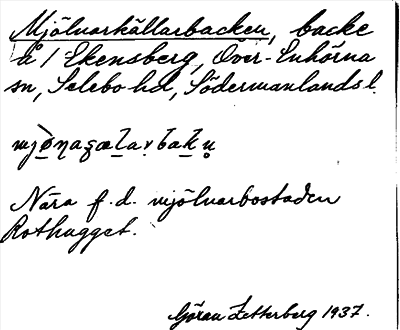 Mjölnarkällarbacken, backe
å / Ekensberg, Över-Enhörna
sn, Selebo hd, Södermanlands l.
Nära f.d. mjölnarbostaden
Rothugget.
Göran Zetterberg 1937.